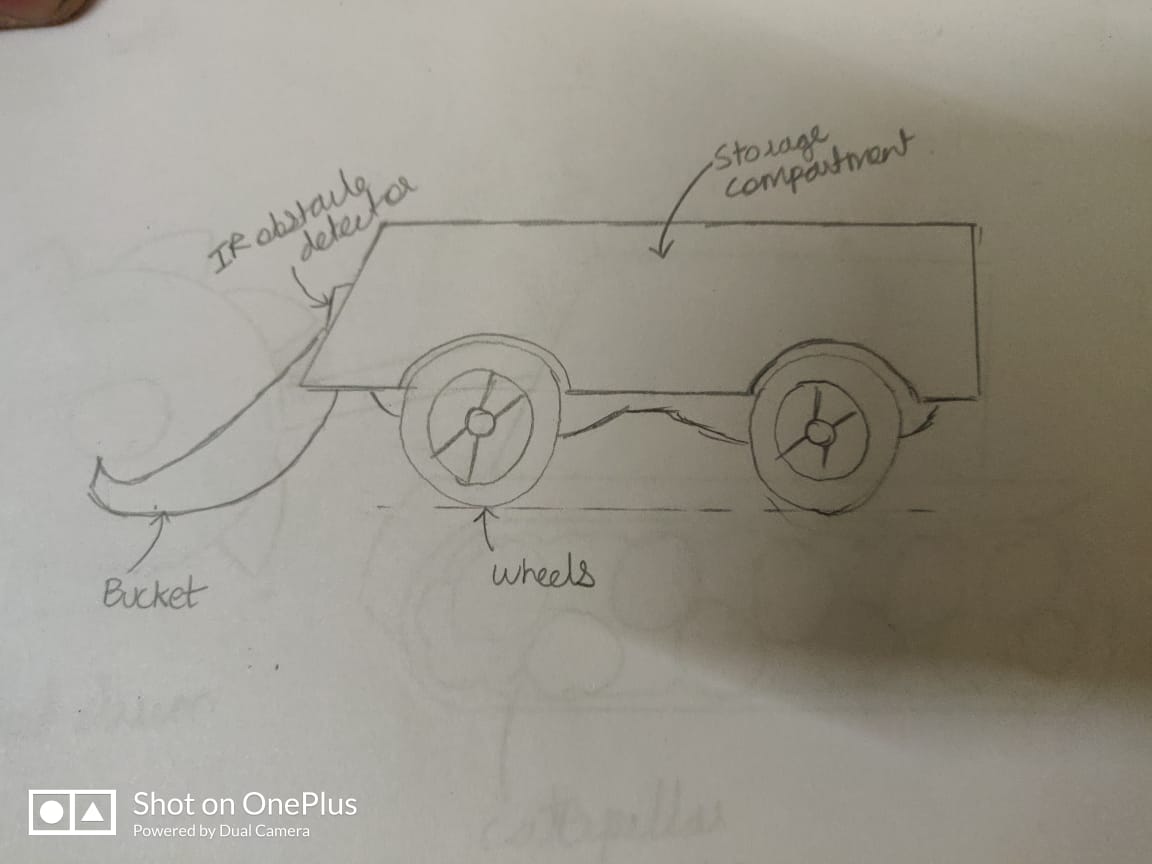 Storage
compartment
IR obstacle
detector
Wheels
Bucket
Shot on OnePlus
Powered by Dual Camera